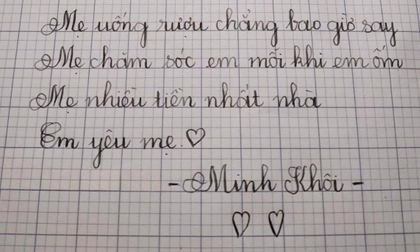 Mẹ uống rượu chẳng bao giờ say
Mẹ chăm sóc em mỗi khi em ốm
Mẹ nhiều tiền nhất nhà
Em yêu mẹ.♡
- Minh Khôi -
♡ ♡